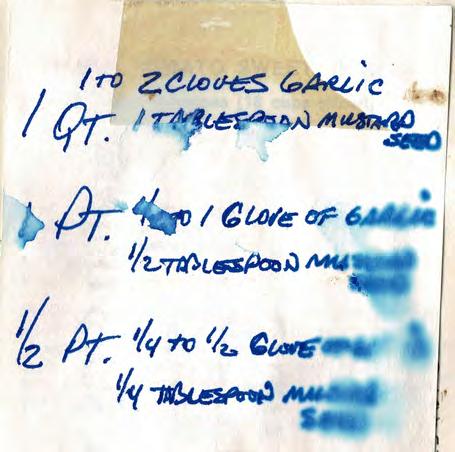 1 TO 2 CLOVES GARLIC
1 QT. 1 TABLESPOON MUSTARD
SEED
PT. TO 1 GLOVE OF GARLIC
1/2 TABLESPOON
1/2 PT. 1/4 TO 1/2 GLOVE
1/4 TABLESPOON MUSTARD
SEED